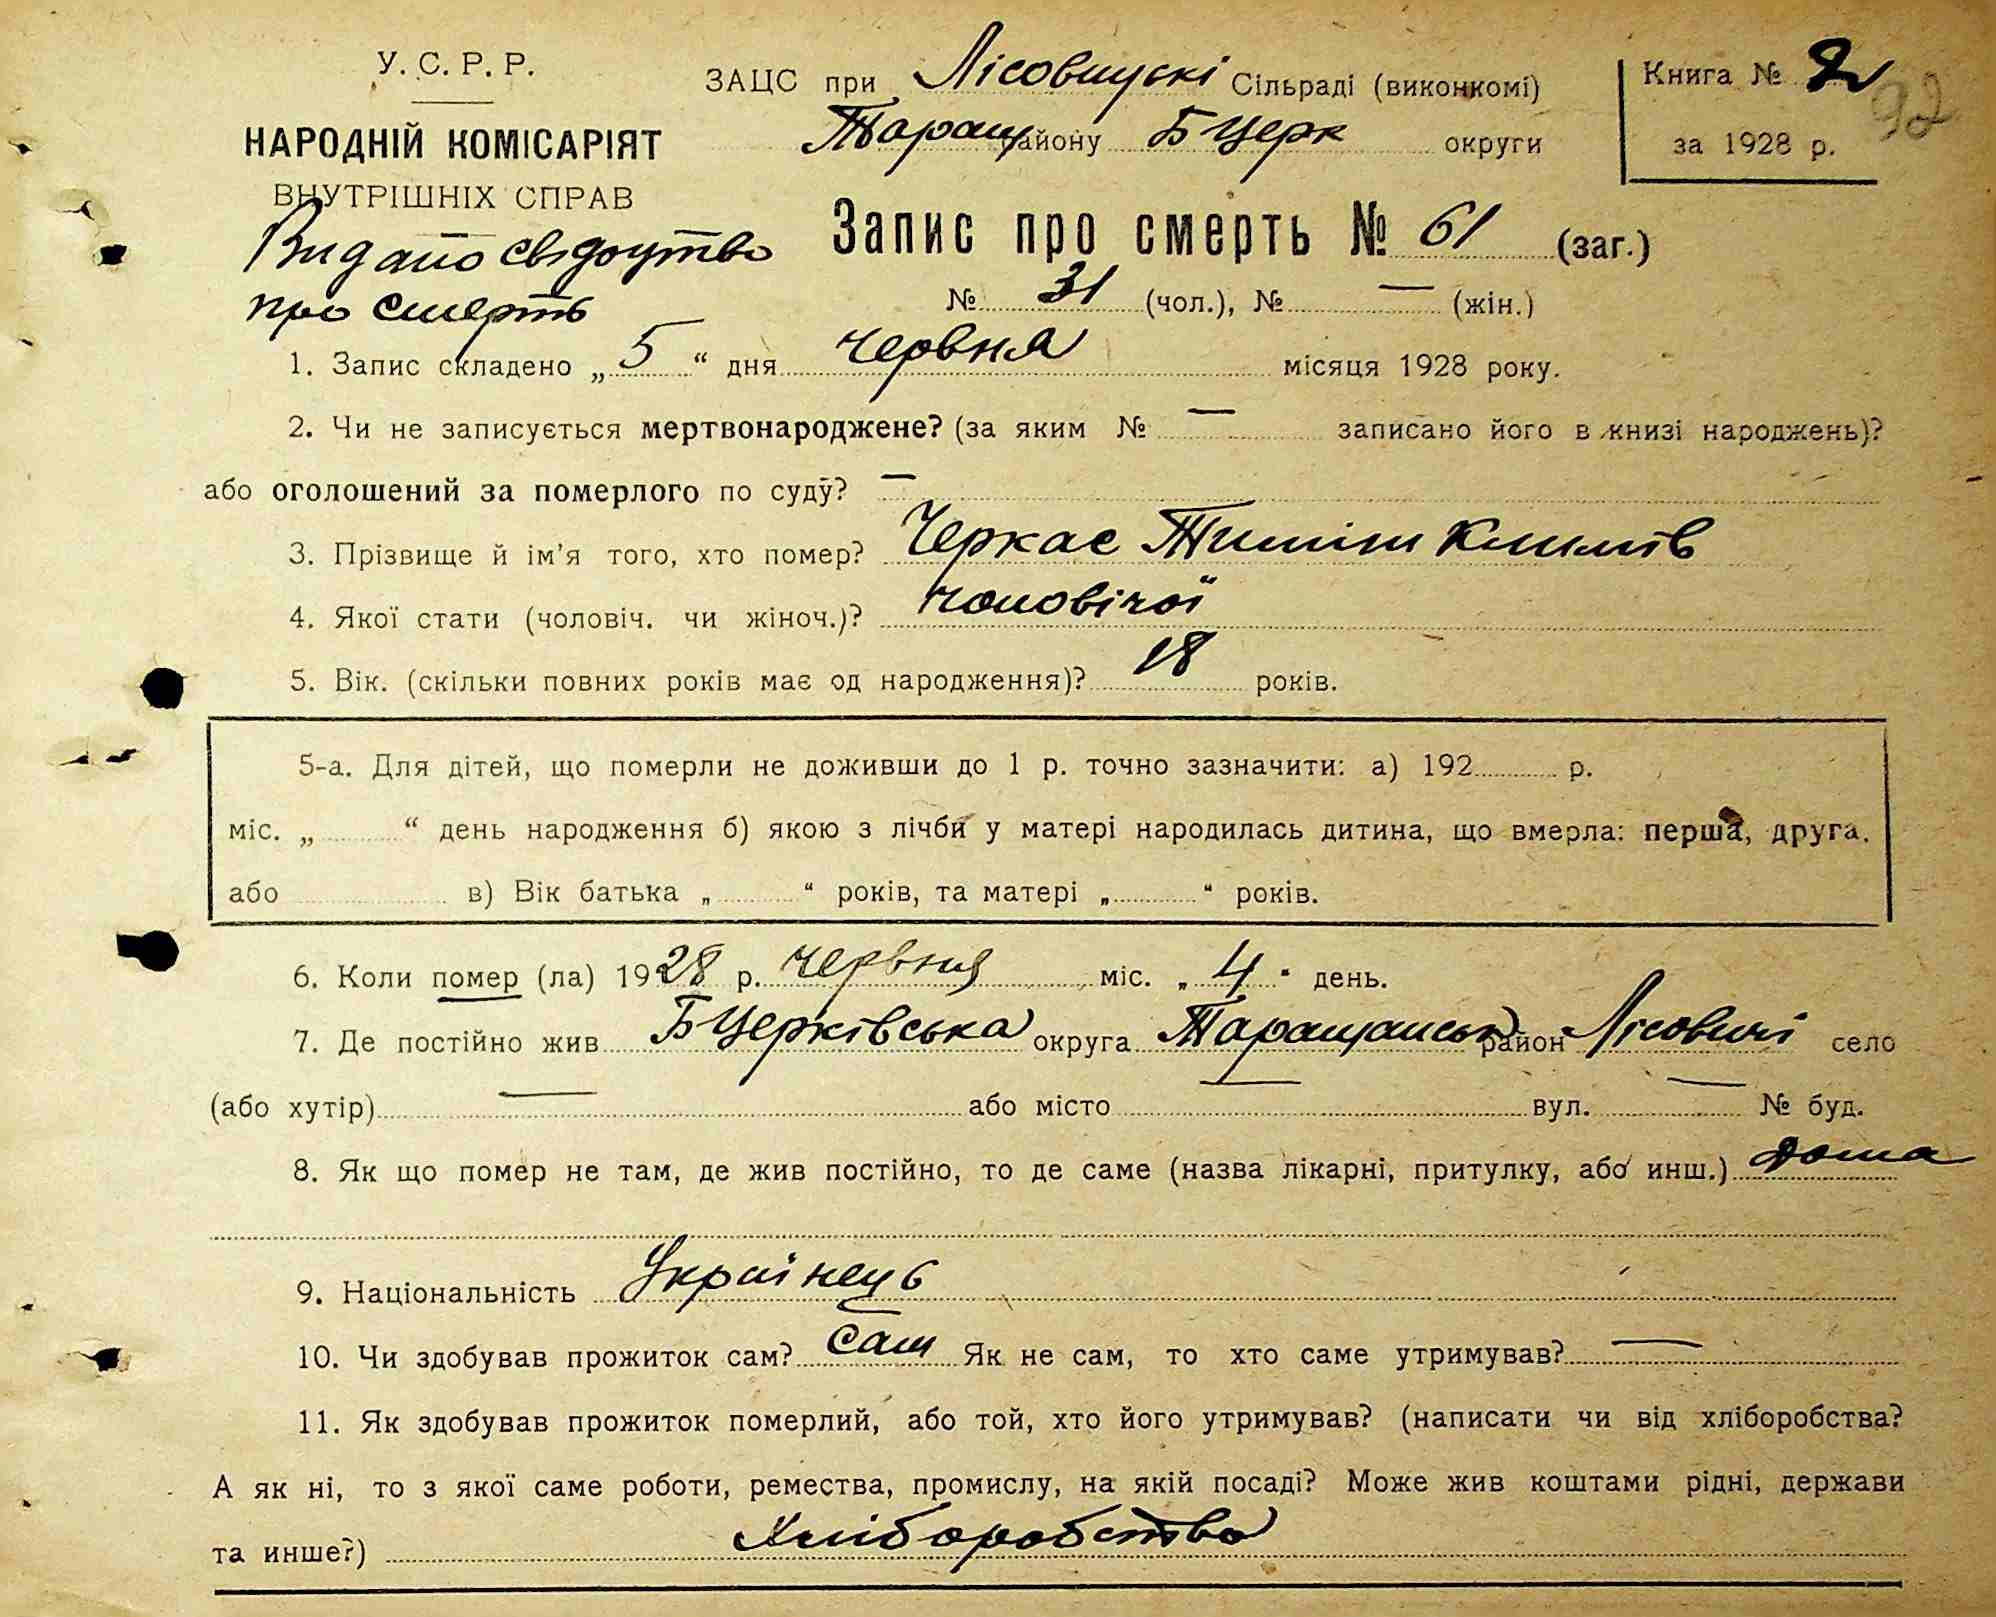 У. С. Р. Р.
НАРОДНІЙ КОМІСАРІЯТ
ВНУТРІШНІХ СПРАВ
Видано свідоцтво
про смерть
ЗАЦС при Лісовицкі Сільраді (виконкомі)
Таращ району БЦерк округи
Книга № 2
92
за 1928 р.
Запис про смерть № 61 (заг.)
№ 31 (чол.), № — (жін.)
1. Запис складено „ 5 “ дня червня місяця 1928 року.
2. Чи не записується мертвонароджене? (за яким № — записано його в книзі народжень)?
або оголошений за померлого по суду? —
3. Прізвище й ім'я того, хто помер? Черкас Тиміш Климів
4. Якої стати (чоловіч. чи жіноч.)? чоловічої
5. Вік. (скільки повних років має од народження)? 18 років.
5-а. Для дітей, що померли не доживши до 1 р. точно зазначити: а) 192 р.
міс. „ “ день народження б) якою з лічби у матері народилась дитина, що вмерла: перша, друга.
або в) Вік батька „ “ років, та матері „ “ років.
6. Коли помер (ла) 1928 р. червня міс. „ 4 “ день.
7. Де постійно жив БЦерківська округа Таращанськ район Лісовичі село
(або хутір) — або місто — вул. — № буд.
8. Як що помер не там, де жив постійно, то де саме (назва лікарні, притулку, або инш.) дома
9. Національність Українець
10. Чи здобував прожиток сам? Сам Як не сам, то хто саме утримував? —
11. Як здобував прожиток померлий, або той, хто його утримував? (написати чи від хліборобства?
А як ні, то з якої саме роботи, ремества, промислу, на якій посаді? Може жив коштами рідні, держави
та инше?) Хліборобство